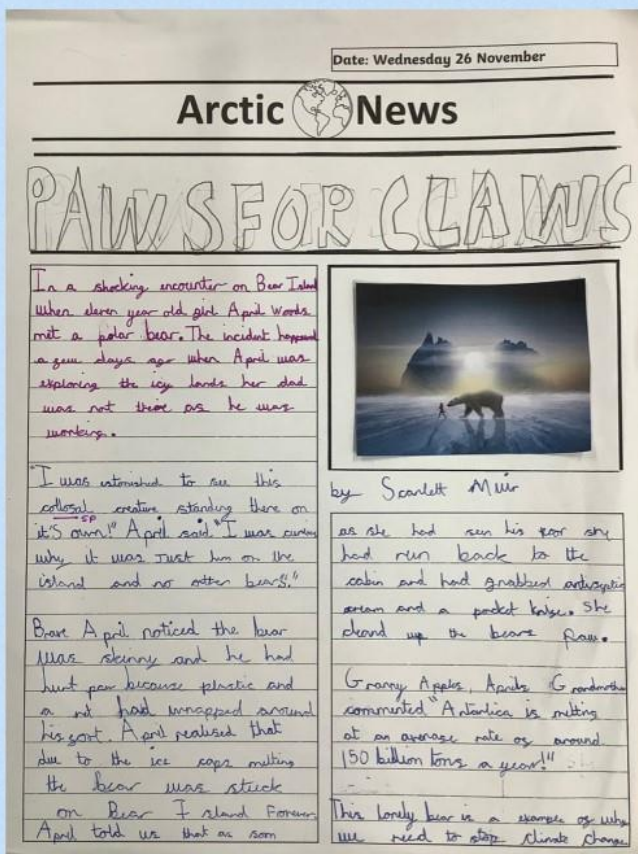 Date: Wednesday 26 November
Arctic News
PAWS FOR CLAWS
In a shocking encounter on Bear Island
when eleven year old girl April Woods
met a polar bear. The incident happened
a few days ago when April was
exploring the icy lands her dad
was not there as he was
working.
"I was astonished to see this
collosal creature standing there on
sp
it's own!" April said. "I was curious
why it was Just him on the
island and no other bears."
Brave April noticed the bear
was skinny and he had
hurt paw because plastic and
a net had wrapped around
his foot. April realised that
due to the ice caps melting
the bear was stuck
on Bear Island Forever.
April told us that as soon
by Scarlett Muir
as she had seen his paw she
had run back to the
cabin and had grabbed antiseptic
cream and a pocket knife. She
cleand up the bears Paw.
Granny Apples, Aprils Grandmother
commented "Antartica is melting
at an average rate of around
150 billion tons a year!"
This lonely bear is a example of why
we need to stop climate change